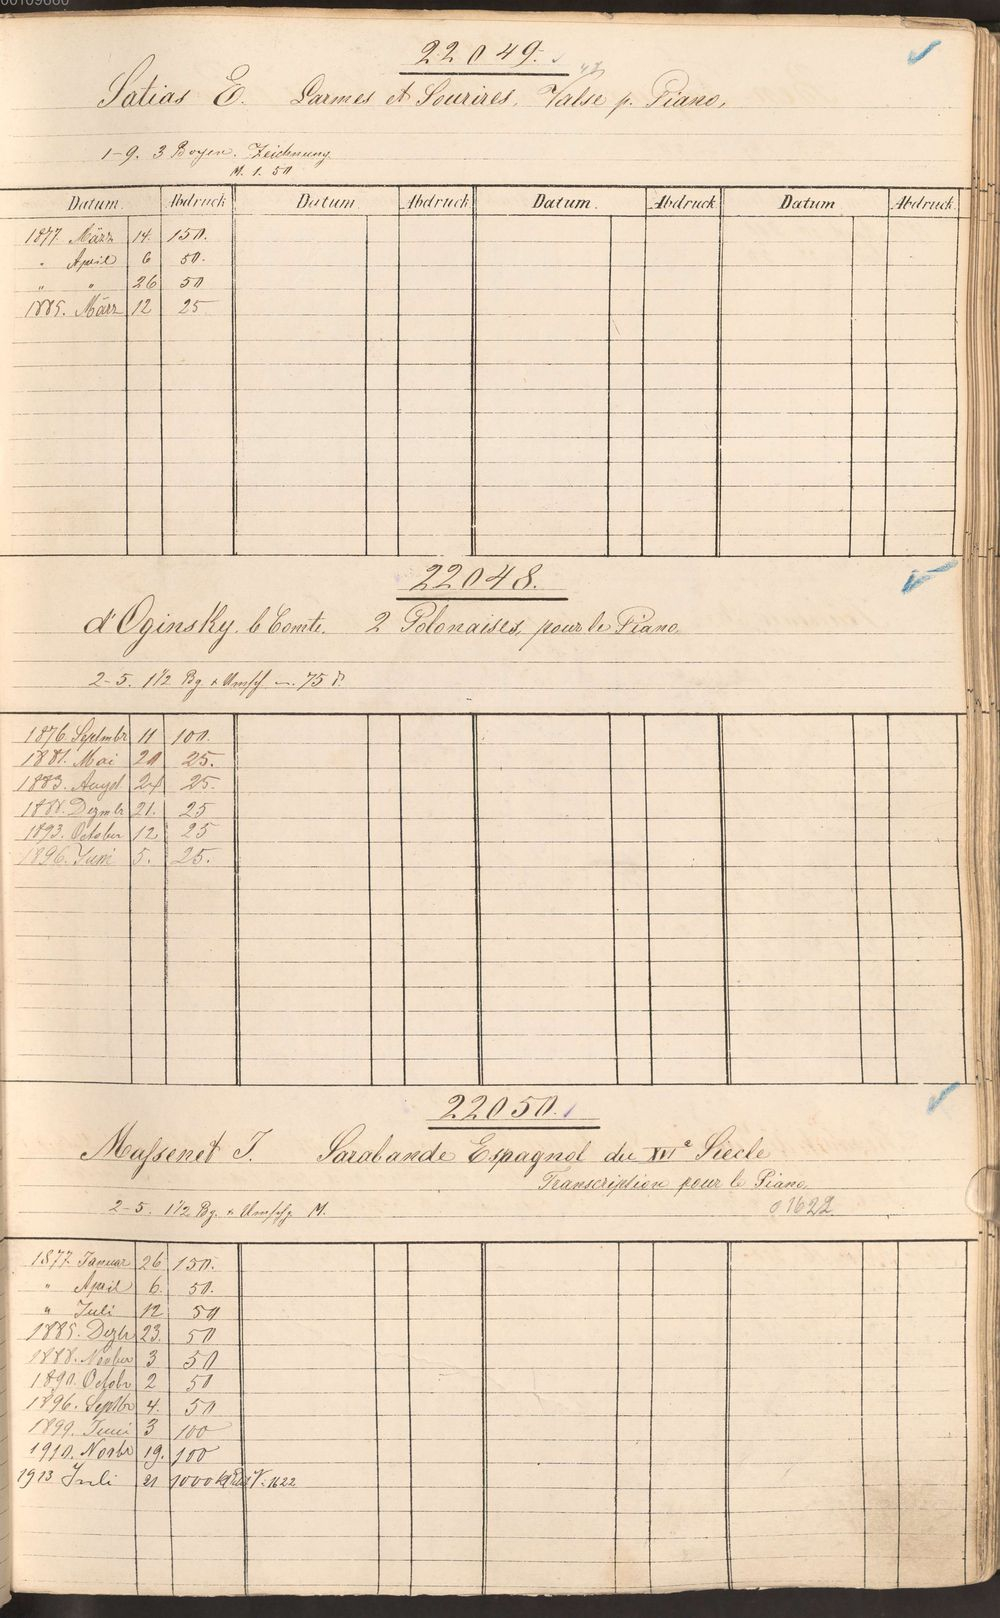 22049.
Satias E. Larmes et Sourires, Valse p. Piano.
1-9. 3 Bogen. Zeichnung
M. 1. 50
Datum. Abdruck Datum Abdruck Datum. Abdruck Datum Abdruck.
1877. März 14. 150.
" April 6 50.
" " 26 50
1885. März 12 25
22048.
d'Oginsky, le Comte. 2 Polonaises, pour le Piano.
2-5. 1½ Bg. + Umschl 75
1876. Septmbr 11 100.
1881. Mai 20 25.
1883. August 24 25.
1888. Dezmbr 21. 25
1893. October 12 25
1896. Juni 5. 25.
22050.
Massenet J. Sarabande Espagnol du XVIe Siecle
Transcription pour le Piano.
2-5. 1½ Bg. + Umschl. M.
01622
1877. Januar 26 150.
" April 6. 50.
" Juli 12 50
1885. Dezbr 23. 50
1888. Novber 3 50
1890. Octobr 2 50
1896. Septbr 4. 50
1899. Juni 3 100
1910. Novbr 19. 100
1913 Juli 21 1000 1622